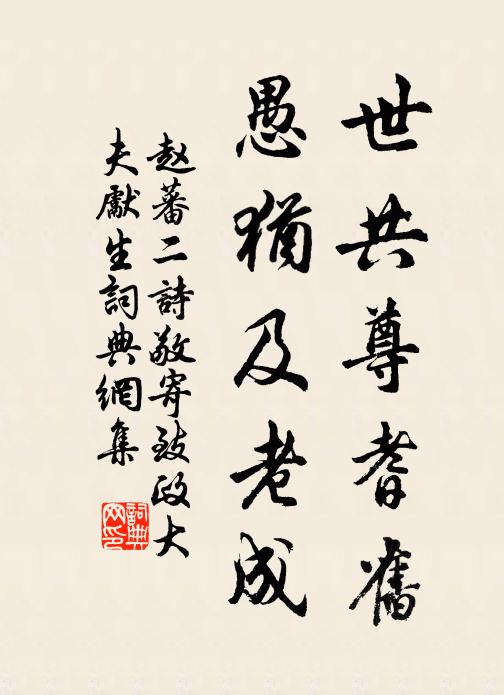 世共尊耆舊
愚猶及老成
赵蕃二詩敬寄致政大
夫獻生詞典網集
詞典
网印